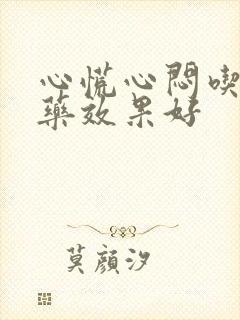 心慌心悶喫
藥效果好
莫顏汐